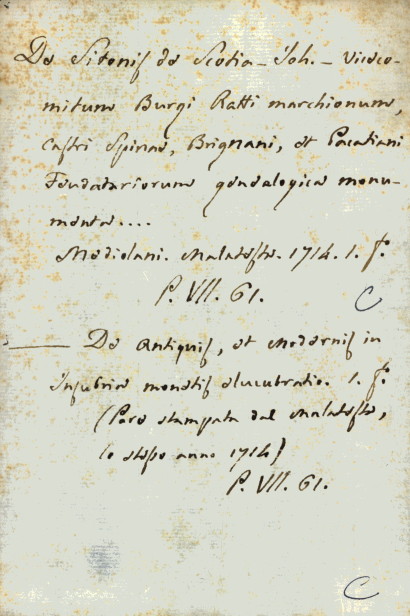 De Sitonis de Scotia - Joh. - Viceco-
mitum Burgi Ratti marchionum,
Castri Spinae, Brignani, et Pacatiani
Feudatariorum genealogica monu-
menta....
Mediolani. Malatesta. 1714. 1. fo.
P. VII. 61.
C
——— De Antiquis, et Modernis in
Insubria monetis elucubratio. 1. fo.
(Pare stampata dal Malatesta,
lo stesso anno 1714)
P. VII. 61.
C